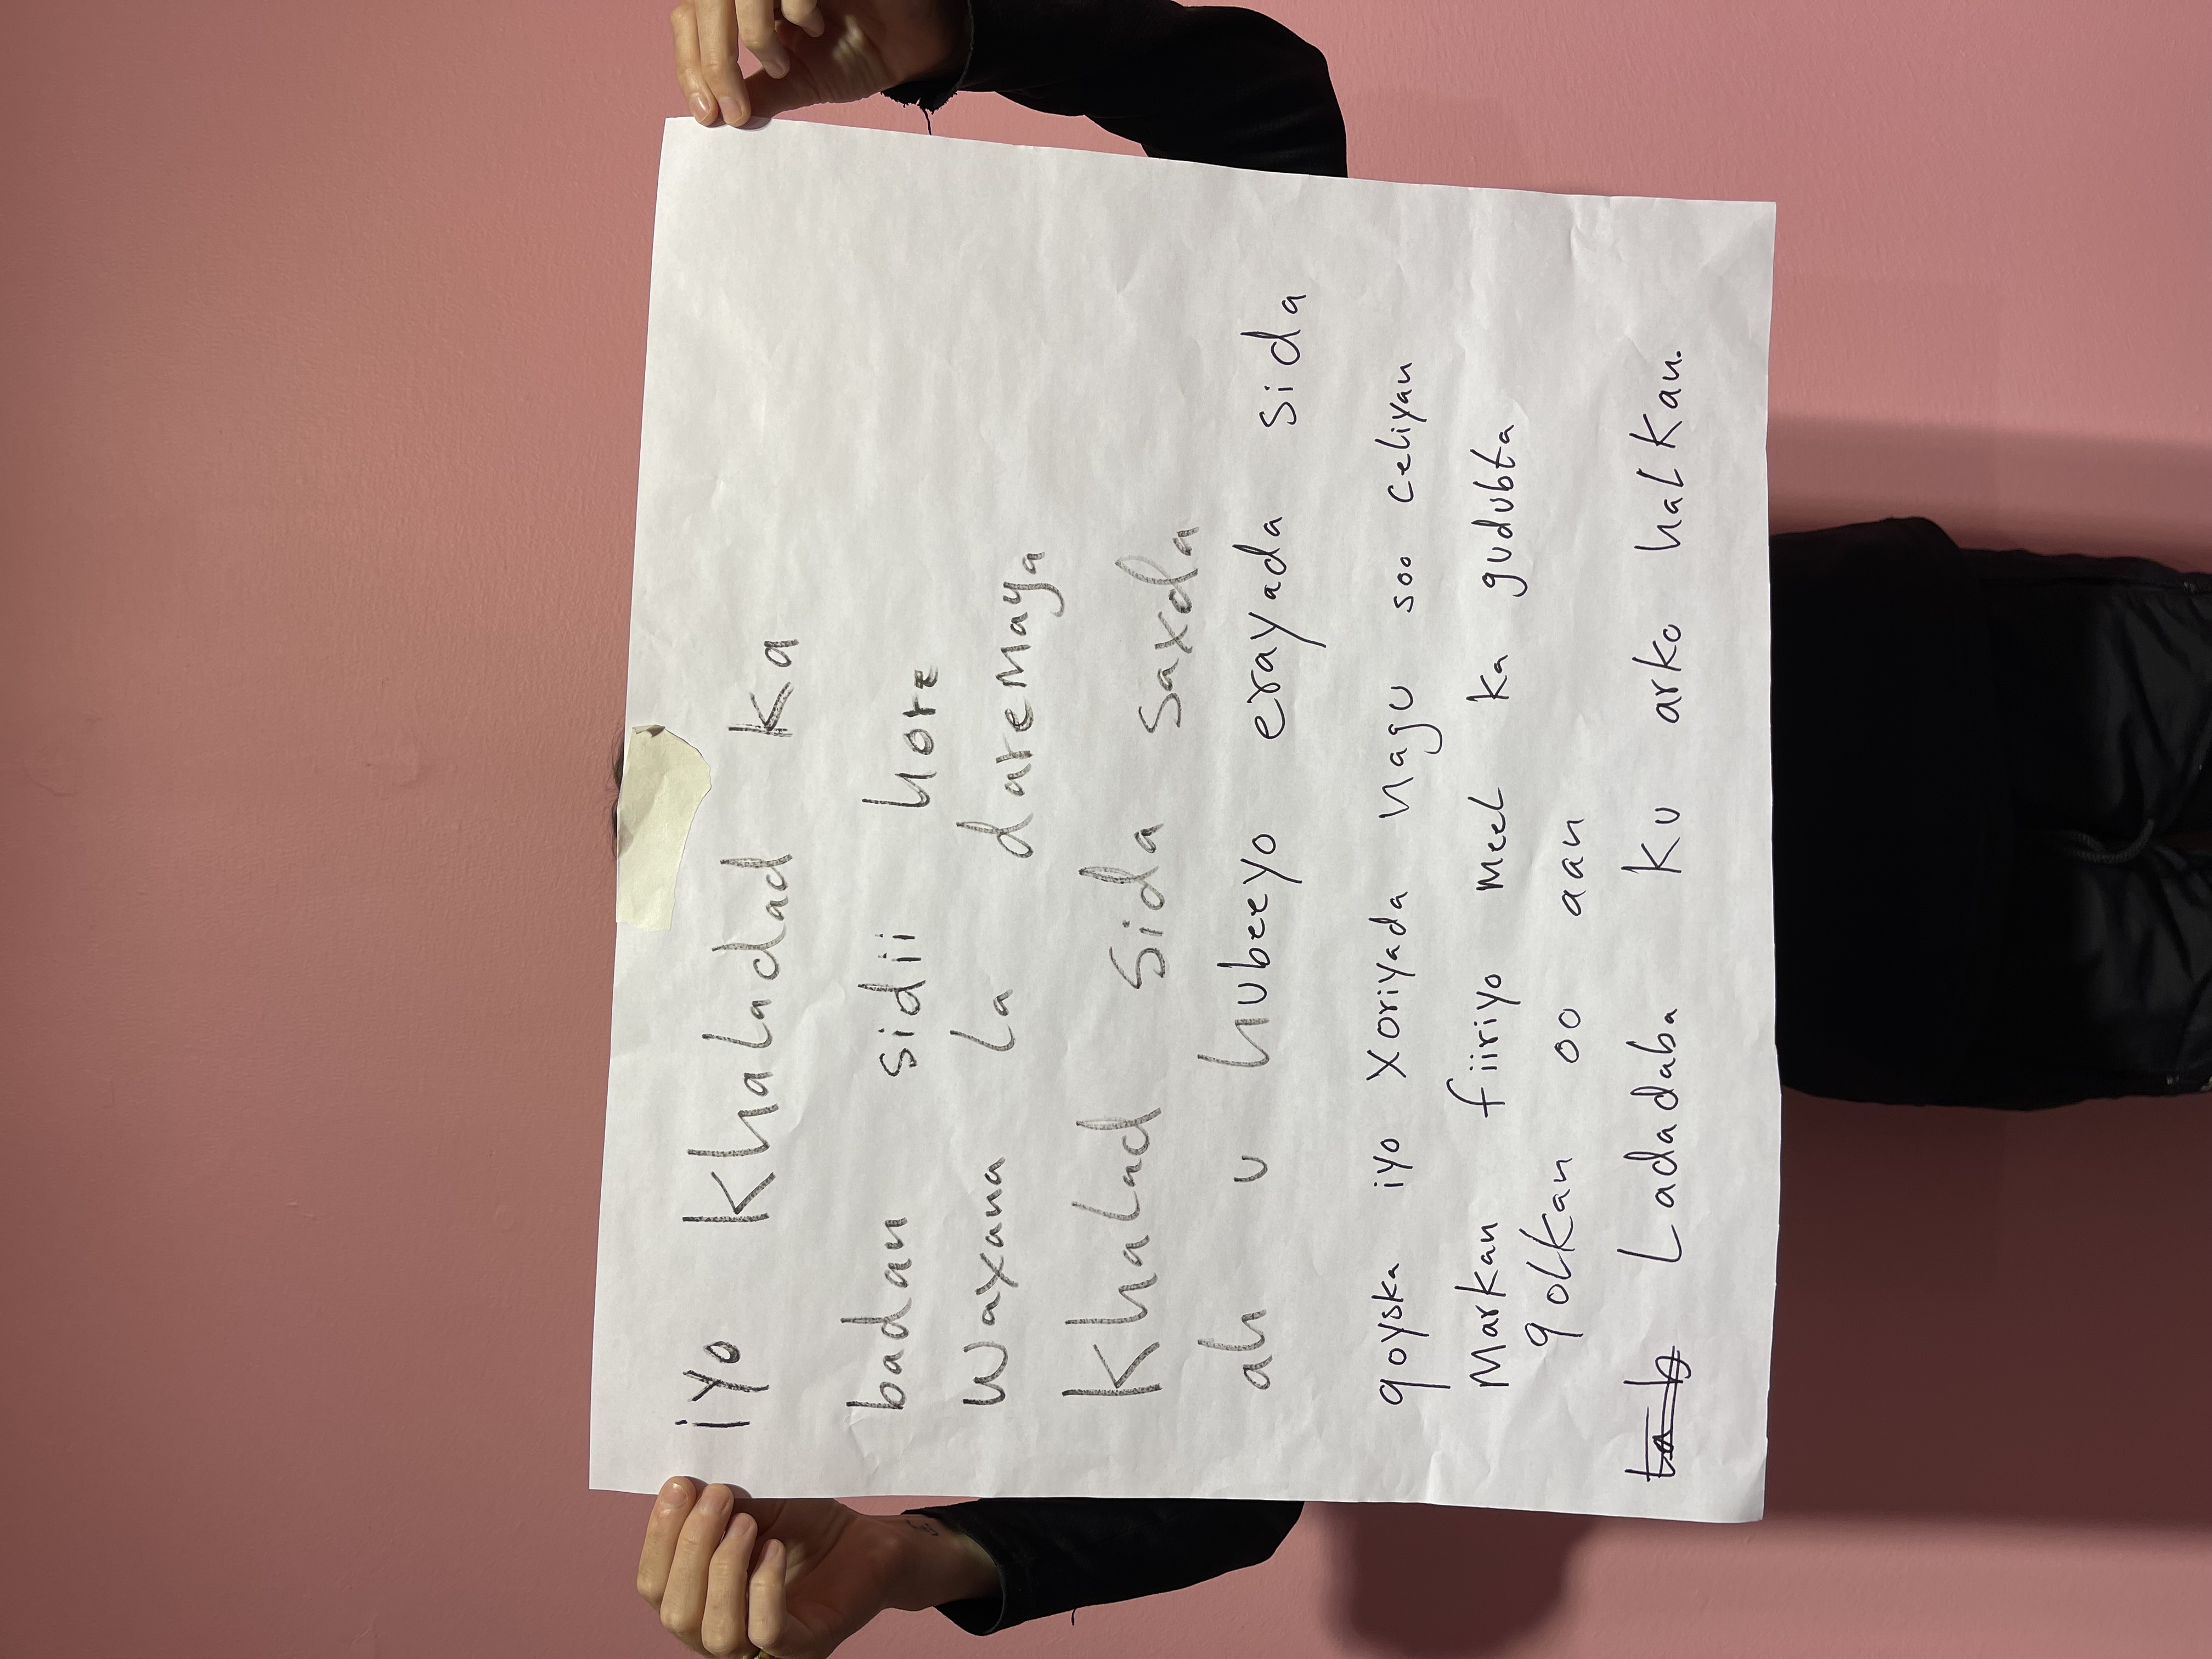 iyo Khaladad ka
badan sidii hore
waxana La daremaya
Khalad sida saxda
ah u hubeeyo erayada sida
qoyska iyo xoriyada nagu soo celiyan
Markan fiiriyo meel ka gudubta
qolkan oo aan
Ladadaba Ku arko halkan.